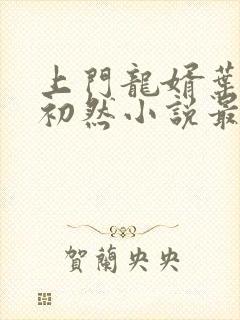 上門龍婿葉
初然小說最
賀蘭央央